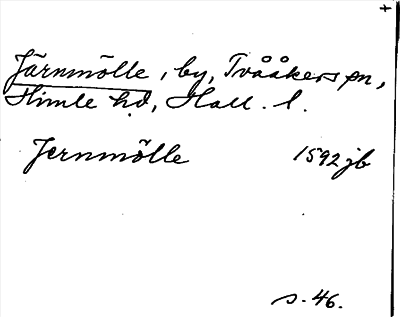 +
Järnmölle, by, Tvååkers sn,
Himle hd, Hall. l.
Jernmölle 1592 jb
s. 46.